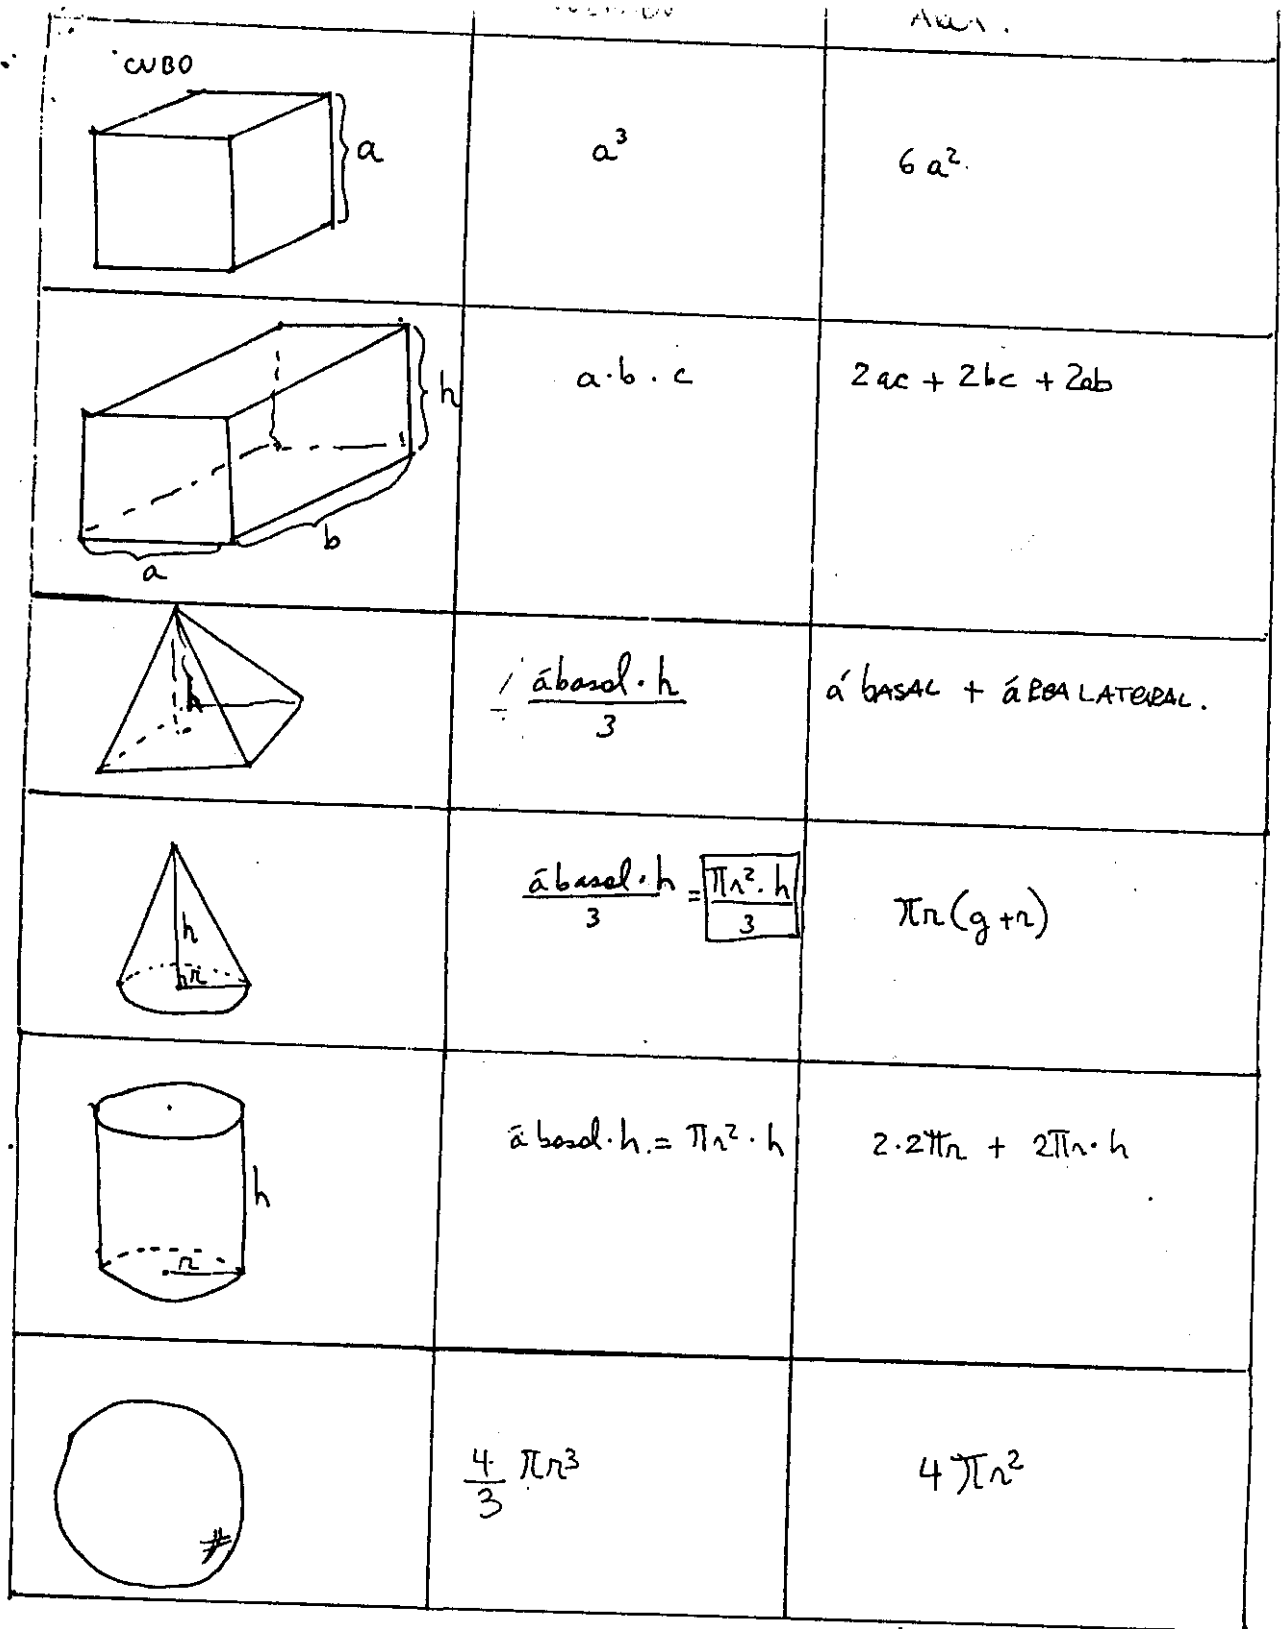 AREA.
CUBO
a
a³
6a².
h
b
a
a·b·c
2ac + 2bc + 2ab
h
ábasal·h
3
á BASAL + áREA LATERAL.
h
r
ábasal·h = πr²·h
3 3
πr(g+r)
h
r
á basal·h = πr²·h
2·2πr + 2πr·h
4 πr³
3
4πr²